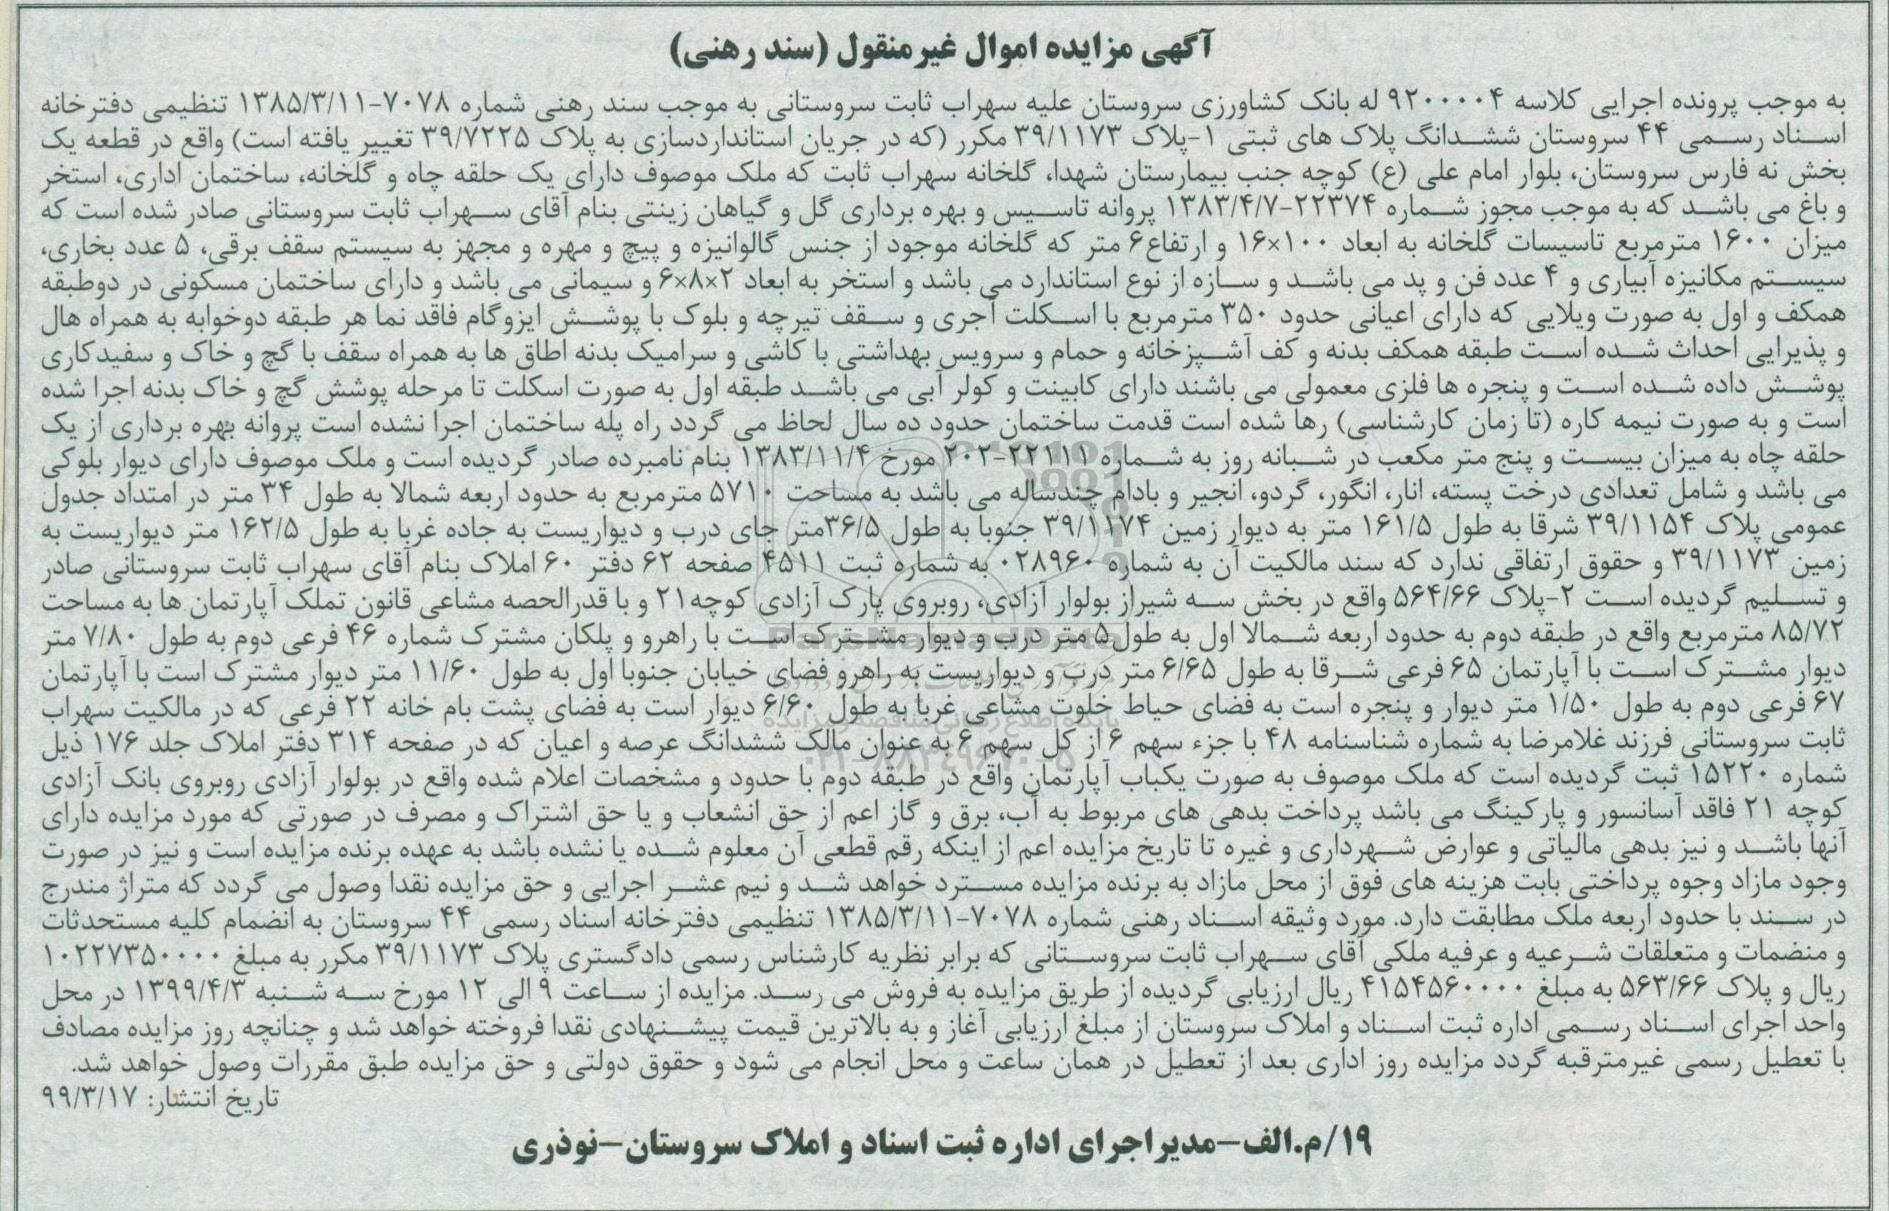 آگهی مزایده اموال غیرمنقول (سند رهنی)
به موجب پرونده اجرایی کلاسه ۹۲۰۰۰۰۴ له بانک کشاورزی سروستان علیه سهراب ثابت سروستانی به موجب سند رهنی شماره ۷۰۷۸-۱۳۸۵/۳/۱۱ تنظیمی دفترخانه
اسناد رسمی ۴۴ سروستان ششدانگ پلاک های ثبتی ۱-پلاک ۳۹/۱۱۷۳ مکرر (که در جریان استانداردسازی به پلاک ۳۹/۷۲۲۵ تغییر یافته است) واقع در قطعه یک
بخش نه فارس سروستان، بلوار امام علی (ع) کوچه جنب بیمارستان شهدا، گلخانه سهراب ثابت که ملک موصوف دارای یک حلقه چاه و گلخانه، ساختمان اداری، استخر
و باغ می باشد که به موجب مجوز شماره ۲۲۳۷۴-۱۳۸۳/۴/۷ پروانه تاسیس و بهره برداری گل و گیاهان زینتی بنام آقای سهراب ثابت سروستانی صادر شده است که
میزان ۱۶۰۰ مترمربع تاسیسات گلخانه به ابعاد ۱۰۰×۱۶ و ارتفاع۶ متر که گلخانه موجود از جنس گالوانیزه و پیچ و مهره و مجهز به سیستم سقف برقی، ۵ عدد بخاری،
سیستم مکانیزه آبیاری و ۴ عدد فن و پد می باشد و سازه از نوع استاندارد می باشد و استخر به ابعاد ۲×۸×۶ و سیمانی می باشد و دارای ساختمان مسکونی در دوطبقه
همکف و اول به صورت ویلایی که دارای اعیانی حدود ۳۵۰ مترمربع با اسکلت آجری و سقف تیرچه و بلوک با پوشش ایزوگام فاقد نما هر طبقه دوخوابه به همراه هال
و پذیرایی احداث شده است طبقه همکف بدنه و کف آشپزخانه و حمام و سرویس بهداشتی با کاشی و سرامیک بدنه اطاق ها به همراه سقف با گچ و خاک و سفیدکاری
پوشش داده شده است و پنجره ها فلزی معمولی می باشند دارای کابینت و کولر آبی می باشد طبقه اول به صورت اسکلت تا مرحله پوشش گچ و خاک بدنه اجرا شده
است و به صورت نیمه کاره (تا زمان کارشناسی) رها شده است قدمت ساختمان حدود ده سال لحاظ می گردد راه پله ساختمان اجرا نشده است پروانه بهره برداری از یک
حلقه چاه به میزان بیست و پنج متر مکعب در شبانه روز به شماره ۲۲۱۱۱-۲۰۲ مورخ ۱۳۸۳/۱۱/۴ بنام نامبرده صادر گردیده است و ملک موصوف دارای دیوار بلوکی
می باشد و شامل تعدادی درخت پسته، انار، انگور، گردو، انجیر و بادام چندساله می باشد به مساحت ۵۷۱۰ مترمربع به حدود اربعه شمالا به طول ۳۴ متر در امتداد جدول
عمومی پلاک ۳۹/۱۱۵۴ شرقا به طول ۱۶۱/۵ متر به دیوار زمین ۳۹/۱۱۷۴ جنوبا به طول ۳۶/۵متر جای درب و دیواریست به جاده غربا به طول ۱۶۲/۵ متر دیواریست به
زمین ۳۹/۱۱۷۳ و حقوق ارتفاقی ندارد که سند مالکیت آن به شماره ۰۲۸۹۶۰ به شماره ثبت ۴۵۱۱ صفحه ۶۲ دفتر ۶۰ املاک بنام آقای سهراب ثابت سروستانی صادر
و تسلیم گردیده است ۲-پلاک ۵۶۴/۶۶ واقع در بخش سه شیراز بولوار آزادی، روبروی پارک آزادی کوچه۲۱ و با قدرالحصه مشاعی قانون تملک آپارتمان ها به مساحت
۸۵/۷۲ مترمربع واقع در طبقه دوم به حدود اربعه شمالا اول به طول۵ متر درب و دیوار مشترک است با راهرو و پلکان مشترک شماره ۴۶ فرعی دوم به طول ۷/۸۰ متر
دیوار مشترک است با آپارتمان ۶۵ فرعی شرقا به طول ۶/۶۵ متر درب و دیواریست به راهرو فضای خیابان جنوبا اول به طول ۱۱/۶۰ متر دیوار مشترک است با آپارتمان
۶۷ فرعی دوم به طول ۱/۵۰ متر دیوار و پنجره است به فضای حیاط خلوت مشاعی غربا به طول ۶/۶۰ دیوار است به فضای پشت بام خانه ۲۲ فرعی که در مالکیت سهراب
ثابت سروستانی فرزند غلامرضا به شماره شناسنامه ۴۸ با جزء سهم ۶ از کل سهم ۶ به عنوان مالک ششدانگ عرصه و اعیان که در صفحه ۳۱۴ دفتر املاک جلد ۱۷۶ ذیل
شماره ۱۵۲۲۰ ثبت گردیده است که ملک موصوف به صورت یکباب آپارتمان واقع در طبقه دوم با حدود و مشخصات اعلام شده واقع در بولوار آزادی روبروی بانک آزادی
کوچه ۲۱ فاقد آسانسور و پارکینگ می باشد پرداخت بدهی های مربوط به آب، برق و گاز اعم از حق انشعاب و یا حق اشتراک و مصرف در صورتی که مورد مزایده دارای
آنها باشد و نیز بدهی مالیاتی و عوارض شهرداری و غیره تا تاریخ مزایده اعم از اینکه رقم قطعی آن معلوم شده یا نشده باشد به عهده برنده مزایده است و نیز در صورت
وجود مازاد وجوه پرداختی بابت هزینه های فوق از محل مازاد به برنده مزایده مسترد خواهد شد و نیم عشر اجرایی و حق مزایده نقدا وصول می گردد که متراژ مندرج
در سند با حدود اربعه ملک مطابقت دارد. مورد وثیقه اسناد رهنی شماره ۷۰۷۸-۱۳۸۵/۳/۱۱ تنظیمی دفترخانه اسناد رسمی ۴۴ سروستان به انضمام کلیه مستحدثات
و منضمات و متعلقات شرعیه و عرفیه ملکی آقای سهراب ثابت سروستانی که برابر نظریه کارشناس رسمی دادگستری پلاک ۳۹/۱۱۷۳ مکرر به مبلغ ۱۰۲۲۷۳۵۰۰۰۰
ریال و پلاک ۵۶۳/۶۶ به مبلغ ۴۱۵۴۵۶۰۰۰۰ ریال ارزیابی گردیده از طریق مزایده به فروش می رسد. مزایده از ساعت ۹ الی ۱۲ مورخ سه شنبه ۱۳۹۹/۴/۳ در محل
واحد اجرای اسناد رسمی اداره ثبت اسناد و املاک سروستان از مبلغ ارزیابی آغاز و به بالاترین قیمت پیشنهادی نقدا فروخته خواهد شد و چنانچه روز مزایده مصادف
با تعطیل رسمی غیرمترقبه گردد مزایده روز اداری بعد از تعطیل در همان ساعت و محل انجام می شود و حقوق دولتی و حق مزایده طبق مقررات وصول خواهد شد.
تاریخ انتشار: ۹۹/۳/۱۷
۱۹/م.الف-مدیراجرای اداره ثبت اسناد و املاک سروستان-نوذری
ParsNamadData
پایگاه اطلاع رسانی مناقصه و مزایده
۰۲۱-۸۸۳۴۹۶۷۰-۵